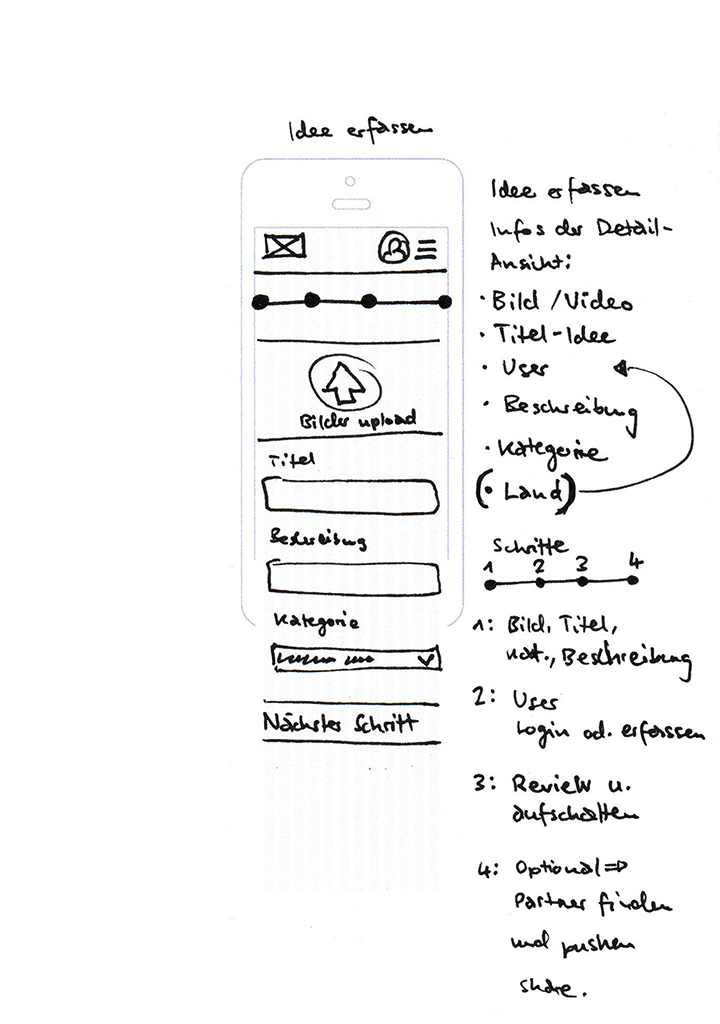 Idee erfassen
Bilder upload
Titel
Beschreibung
Kategorie
Nächster Schritt
Idee erfassen
Infos der Detail-
Ansicht:
· Bild / Video
· Titel-Idee
· User
· Beschreibung
· Kategorie
(· Land)
Schritte
1 2 3 4
1: Bild, Titel,
Beschreibung
2: User
Login od. erfassen
3: Review u.
aufschalten
4: Optional ⇒
Partner finden
und pushen
share.